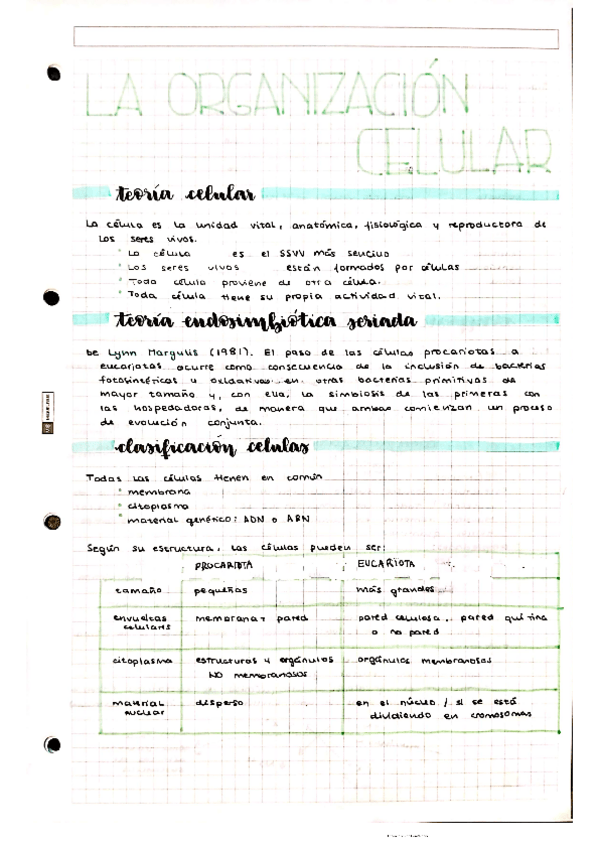 LA ORGANIZACIÓN
CELULAR
teoría celular
La célula es la unidad vital, anatómica, fisiológica y reproductora de
los seres vivos.
La célula es el SSVV más sencillo
Los seres vivos están formados por células
Toda célula proviene de otra célula.
Toda célula tiene su propia actividad vital.
teoría endosimbiótica seriada
De Lynn Margulis (1981). El paso de las células procariotas a
eucariotas ocurre como consecuencia de la inclusión de bacterias
fotosintéticas u oxidativas en otras bacterias primitivas de
mayor tamaño y, con ella, la simbiosis de las primeras con
las hospedadoras, de manera que ambas comienzan un proceso
de evolución conjunta.
clasificación celulas
Todas las células tienen en común
membrana
citoplasma
material genético: ADN o ARN
Según su estructura, las células pueden ser:
PROCARIOTA EUCARIOTA
tamaño pequeñas más grandes
envueltas membrana y pared pared celulosa, pared quitina
celulares o no pared
citoplasma estructuras y orgánulos orgánulos membranosos
NO membranosos
material disperso en el núcleo / si se está
nuclear dividiendo en cromosomas